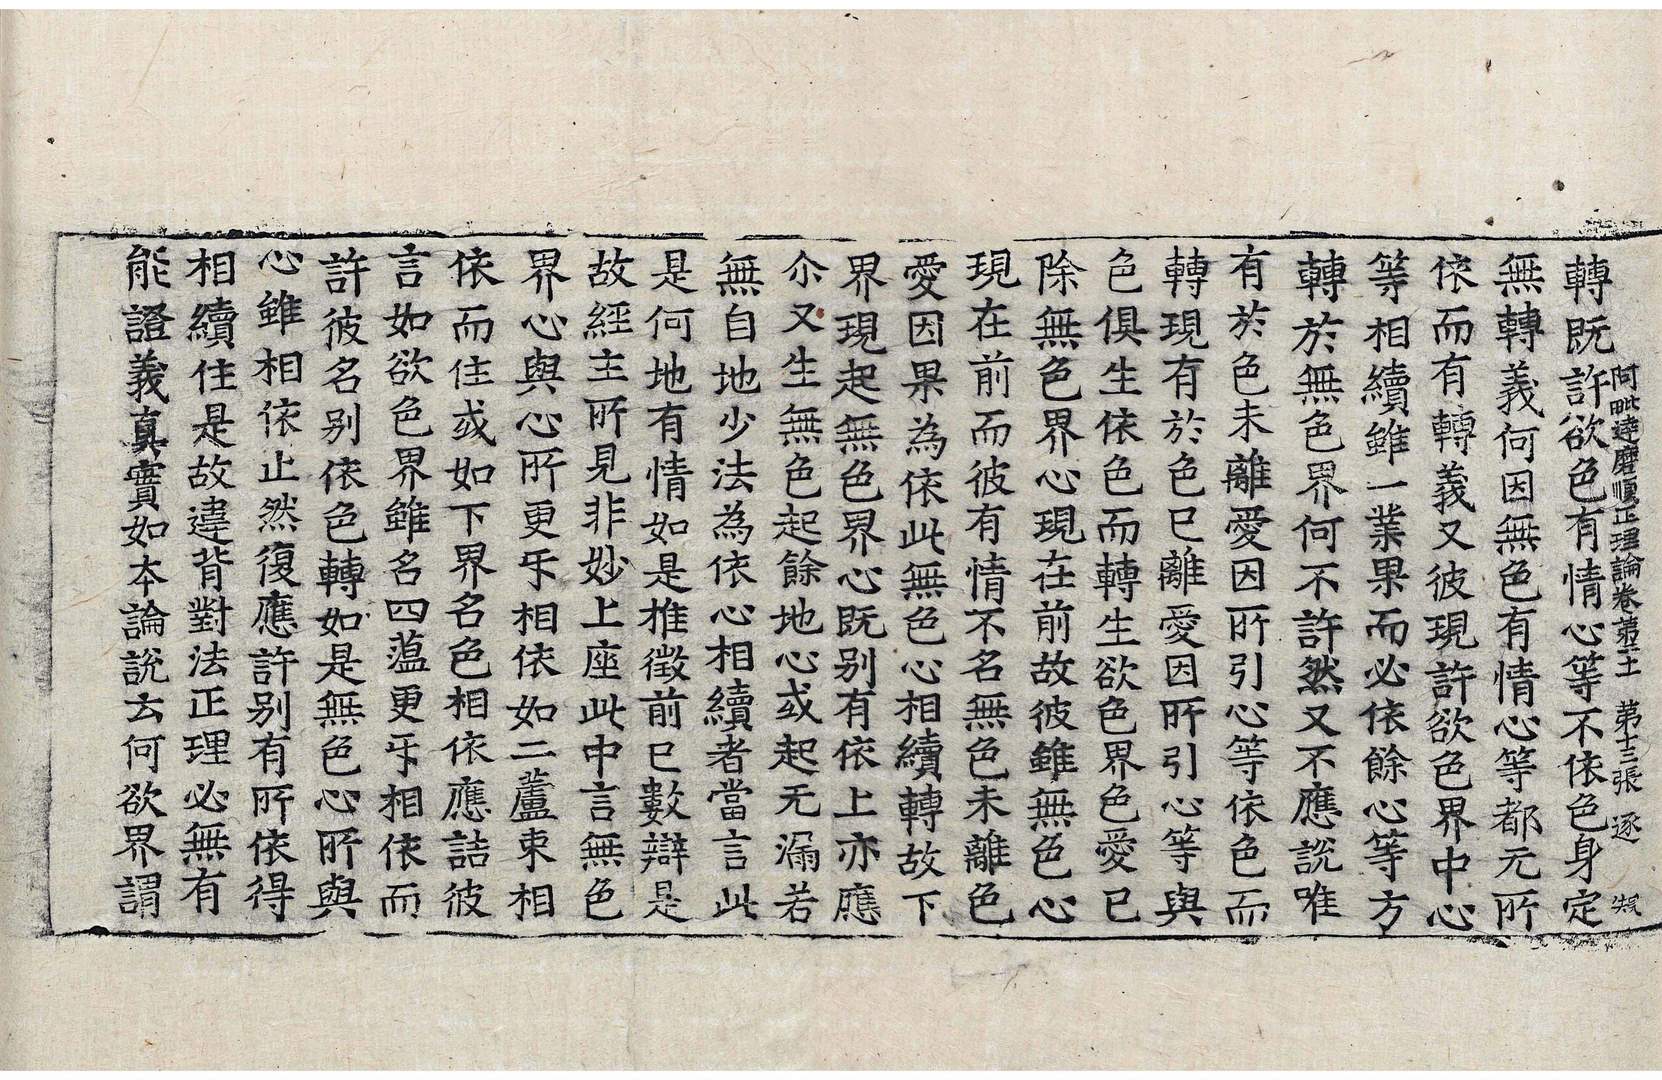 阿毗達磨順正理論卷苐 苐十三張 逐
轉既許欲色有情心等不依色身定
無轉義何因無色有情心等都无所
依而有轉義又彼現許欲色界中心
等相續雖一業果而必依餘心等方
轉於無色界何不許然又不應說唯
有於色未離愛因所引心等依色而
轉現有於色已離愛因所引心等與
色俱生依色而轉生欲色界色愛已
除無色界心現在前故彼雖無色心
現在前而彼有情不名無色未離色
愛因果為依此無色心相續轉故下
界現起無色界心既别有依上亦應
尒又生無色起餘地心或起无漏若
無自地少法為依心相續者當言此
是何地有情如是推徵前已數辯是
故經主所見非妙上座此中言無色
界心與心所更㸦相依如二蘆束相
依而住或如下界名色相依應詰彼
言如欲色界雖名四薀更㸦相依而
許彼名别依色轉如是無色心所與
心雖相依止然復應許别有所依得
相續住是故違背對法正理必無有
能證義真實如本論說云何欲界謂